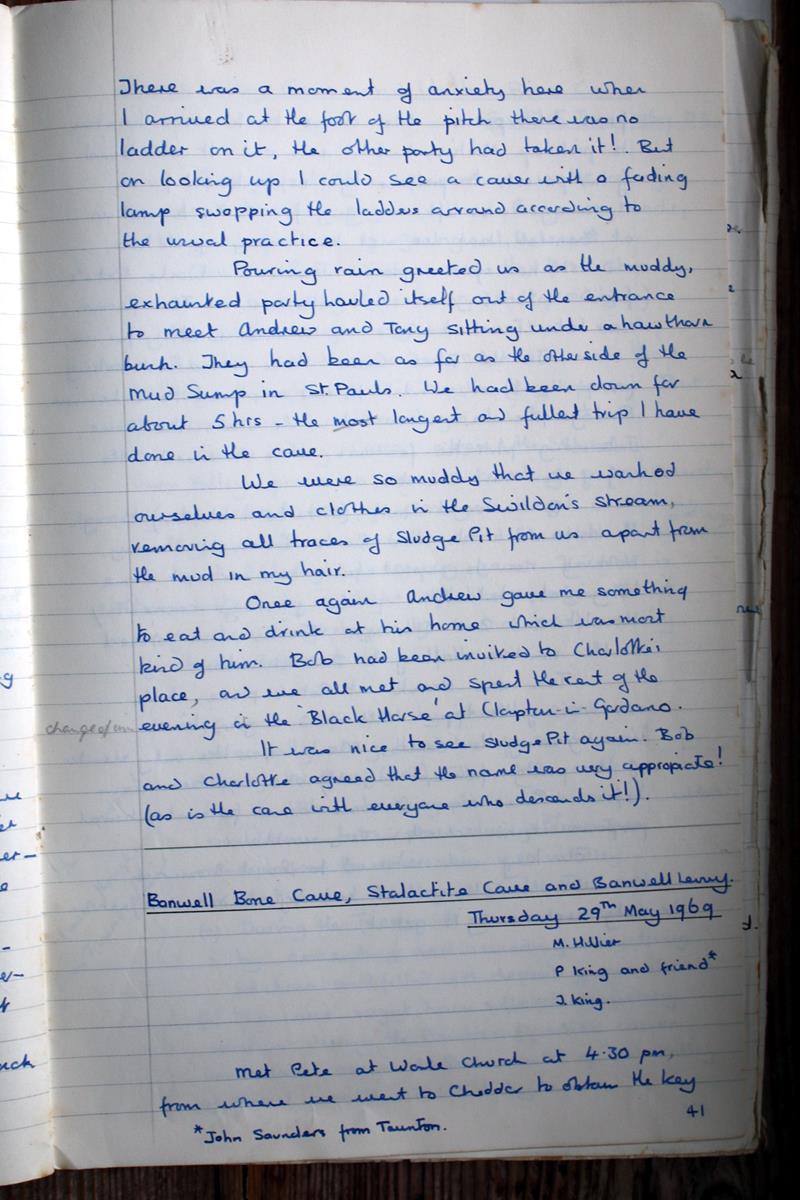 There was a moment of anxiety here when
I arrived at the foot of the pitch there was no
ladder on it, the other party had taken it! But
on looking up I could see a caver with a fading
lamp swopping the ladders around according to
the usual practice.
Pouring rain greeted us as the muddy,
exhausted party hauled itself out of the entrance
to meet Andrew and Tony sitting under a hawthorn
bush. They had been as far as the other side of the
Mud Sump in St. Pauls. We had been down for
about 5 hrs - the most longest and fullest trip I have
done in the cave.
We were so muddy that we washed
ourselves and clothes in the Swildon's stream,
removing all traces of Sludge Pit from us apart from
the mud in my hair.
Once again Andrew gave me something
to eat and drink at his home which was most
kind of him. Bob had been invited to Charlotte's
place, and we all met and spent the rest of the
change of
evening in the 'Black Horse' at Clapton-in-Gordano.
It was nice to see Sludge Pit again. Bob
and Charlotte agreed that the name was very appropiate!
(as is the case with everyone who descends it!).
Banwell Bone Cave, Stalactite Cave and Banwell Levvy.
Thursday 29th May 1969
M. Hillier
P King and friend*
J. King.
Met Pete at Worle Church at 4.30 pm,
from where we went to Cheddar to obtain the key
*John Saunders from Taunton.
41